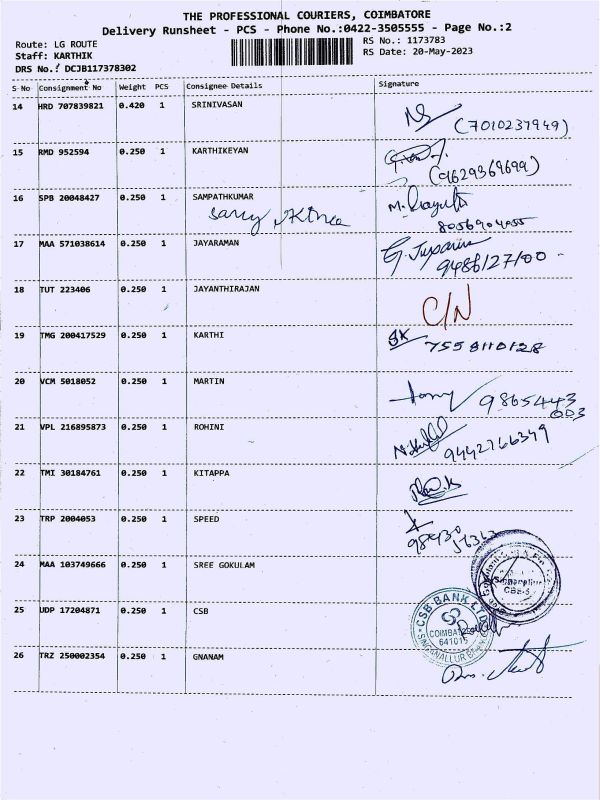 THE PROFESSIONAL COURIERS, COIMBATORE
Delivery Runsheet - PCS - Phone No.:0422-3505555 - Page No.:2
Route: LG ROUTE
RS No.: 1173783
Staff: KARTHIK
RS Date: 20-May-2023
DRS No.: DCJB117378302
S No Consignment No Weight PCS Consignee Details Signature
14 HRD 707839821 0.420 1 SRINIVASAN
(7010237949)
15 RMD 952594 0.250 1 KARTHIKEYAN
(9629369699)
16 SPB 20048427 0.250 1 SAMPATHKUMAR
8056904055
17 MAA 571038614 0.250 1 JAYARAMAN
9486127100
18 TUT 223406 0.250 1 JAYANTHIRAJAN
C/N
19 TMG 200417529 0.250 1 KARTHI
7558110128
20 VCM 5018052 0.250 1 MARTIN
9865443
003
21 VPL 216895873 0.250 1 ROHINI
9442766349
22 TMI 30184761 0.250 1 KITAPPA
23 TRP 2004053 0.250 1 SPEED
98430
24 MAA 103749666 0.250 1 SREE GOKULAM
Singanallur
CBE-5
25 UDP 17204871 0.250 1 CSB
CSB BANK LTD
COIMBATORE
641015
SINGANALLUR
26 TRZ 250002354 0.250 1 GNANAM